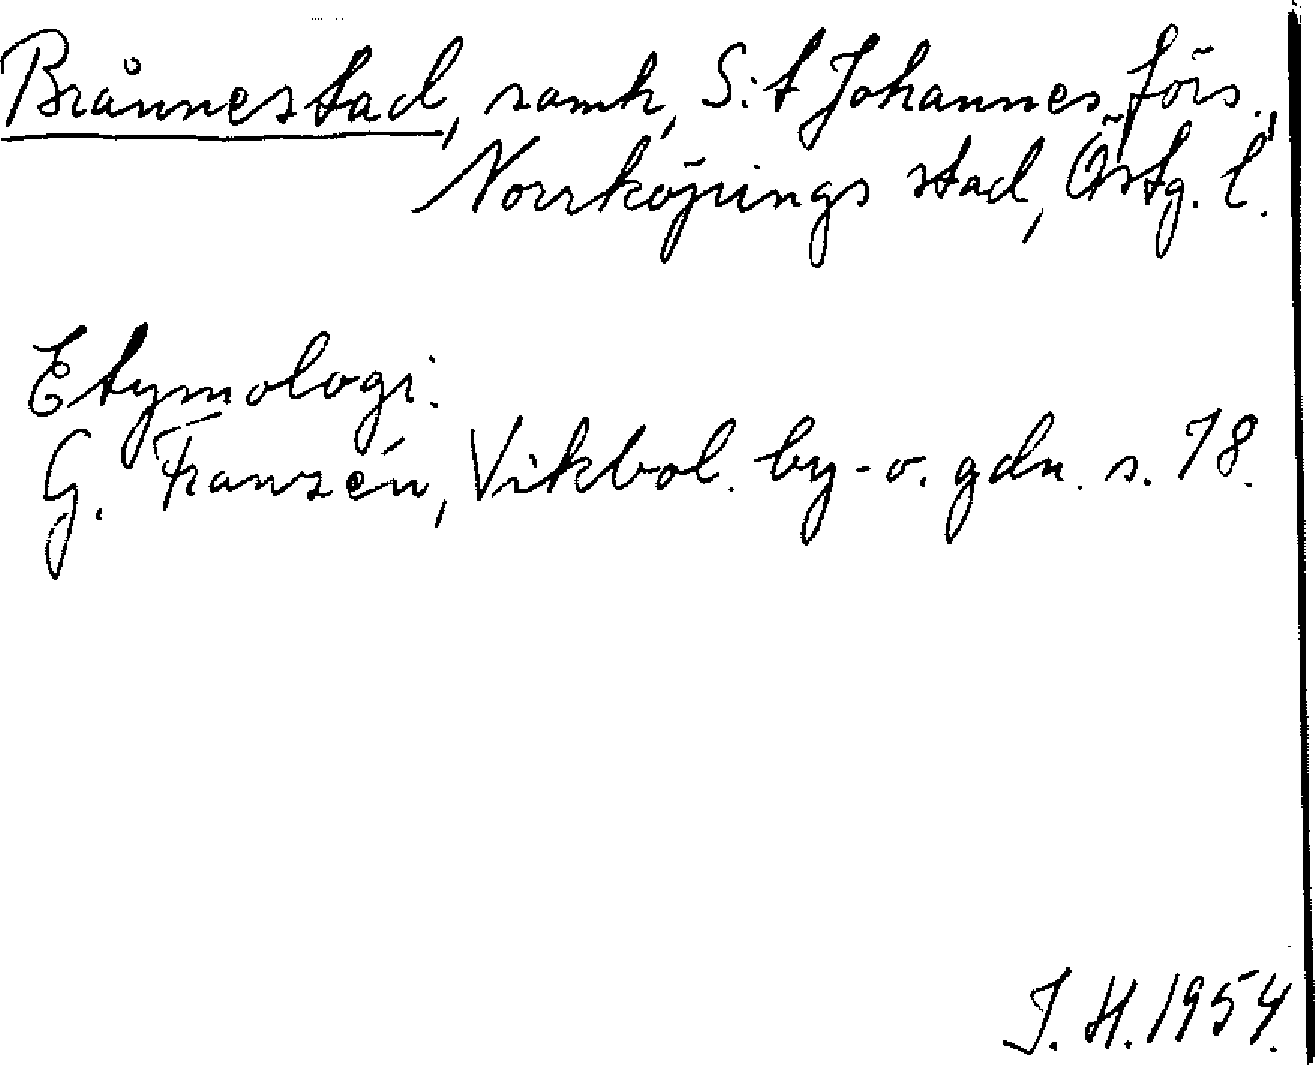 Brånnestad, samh, S:t Johannes förs.,
Norrköpings stad, Östg. l.
Etymologi.
G. Franzén, Vikbol. by- o. gdn. s. 78.
J. H. 1954.